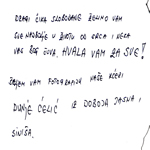 DRAGI ČIKA SLOBODANE ŽELIMO VAM
SVE NAJBOLJE U ŽIVOTU OD SRCA I NEKA
VAS BOG ČUVA. HVALA VAM ZA SVE!
ŠALJEM VAM FOTOGRAFIJU NAŠE KĆERI
DUNJE ĆELIĆ IZ DOBOJA JASNA I
SINIŠA.